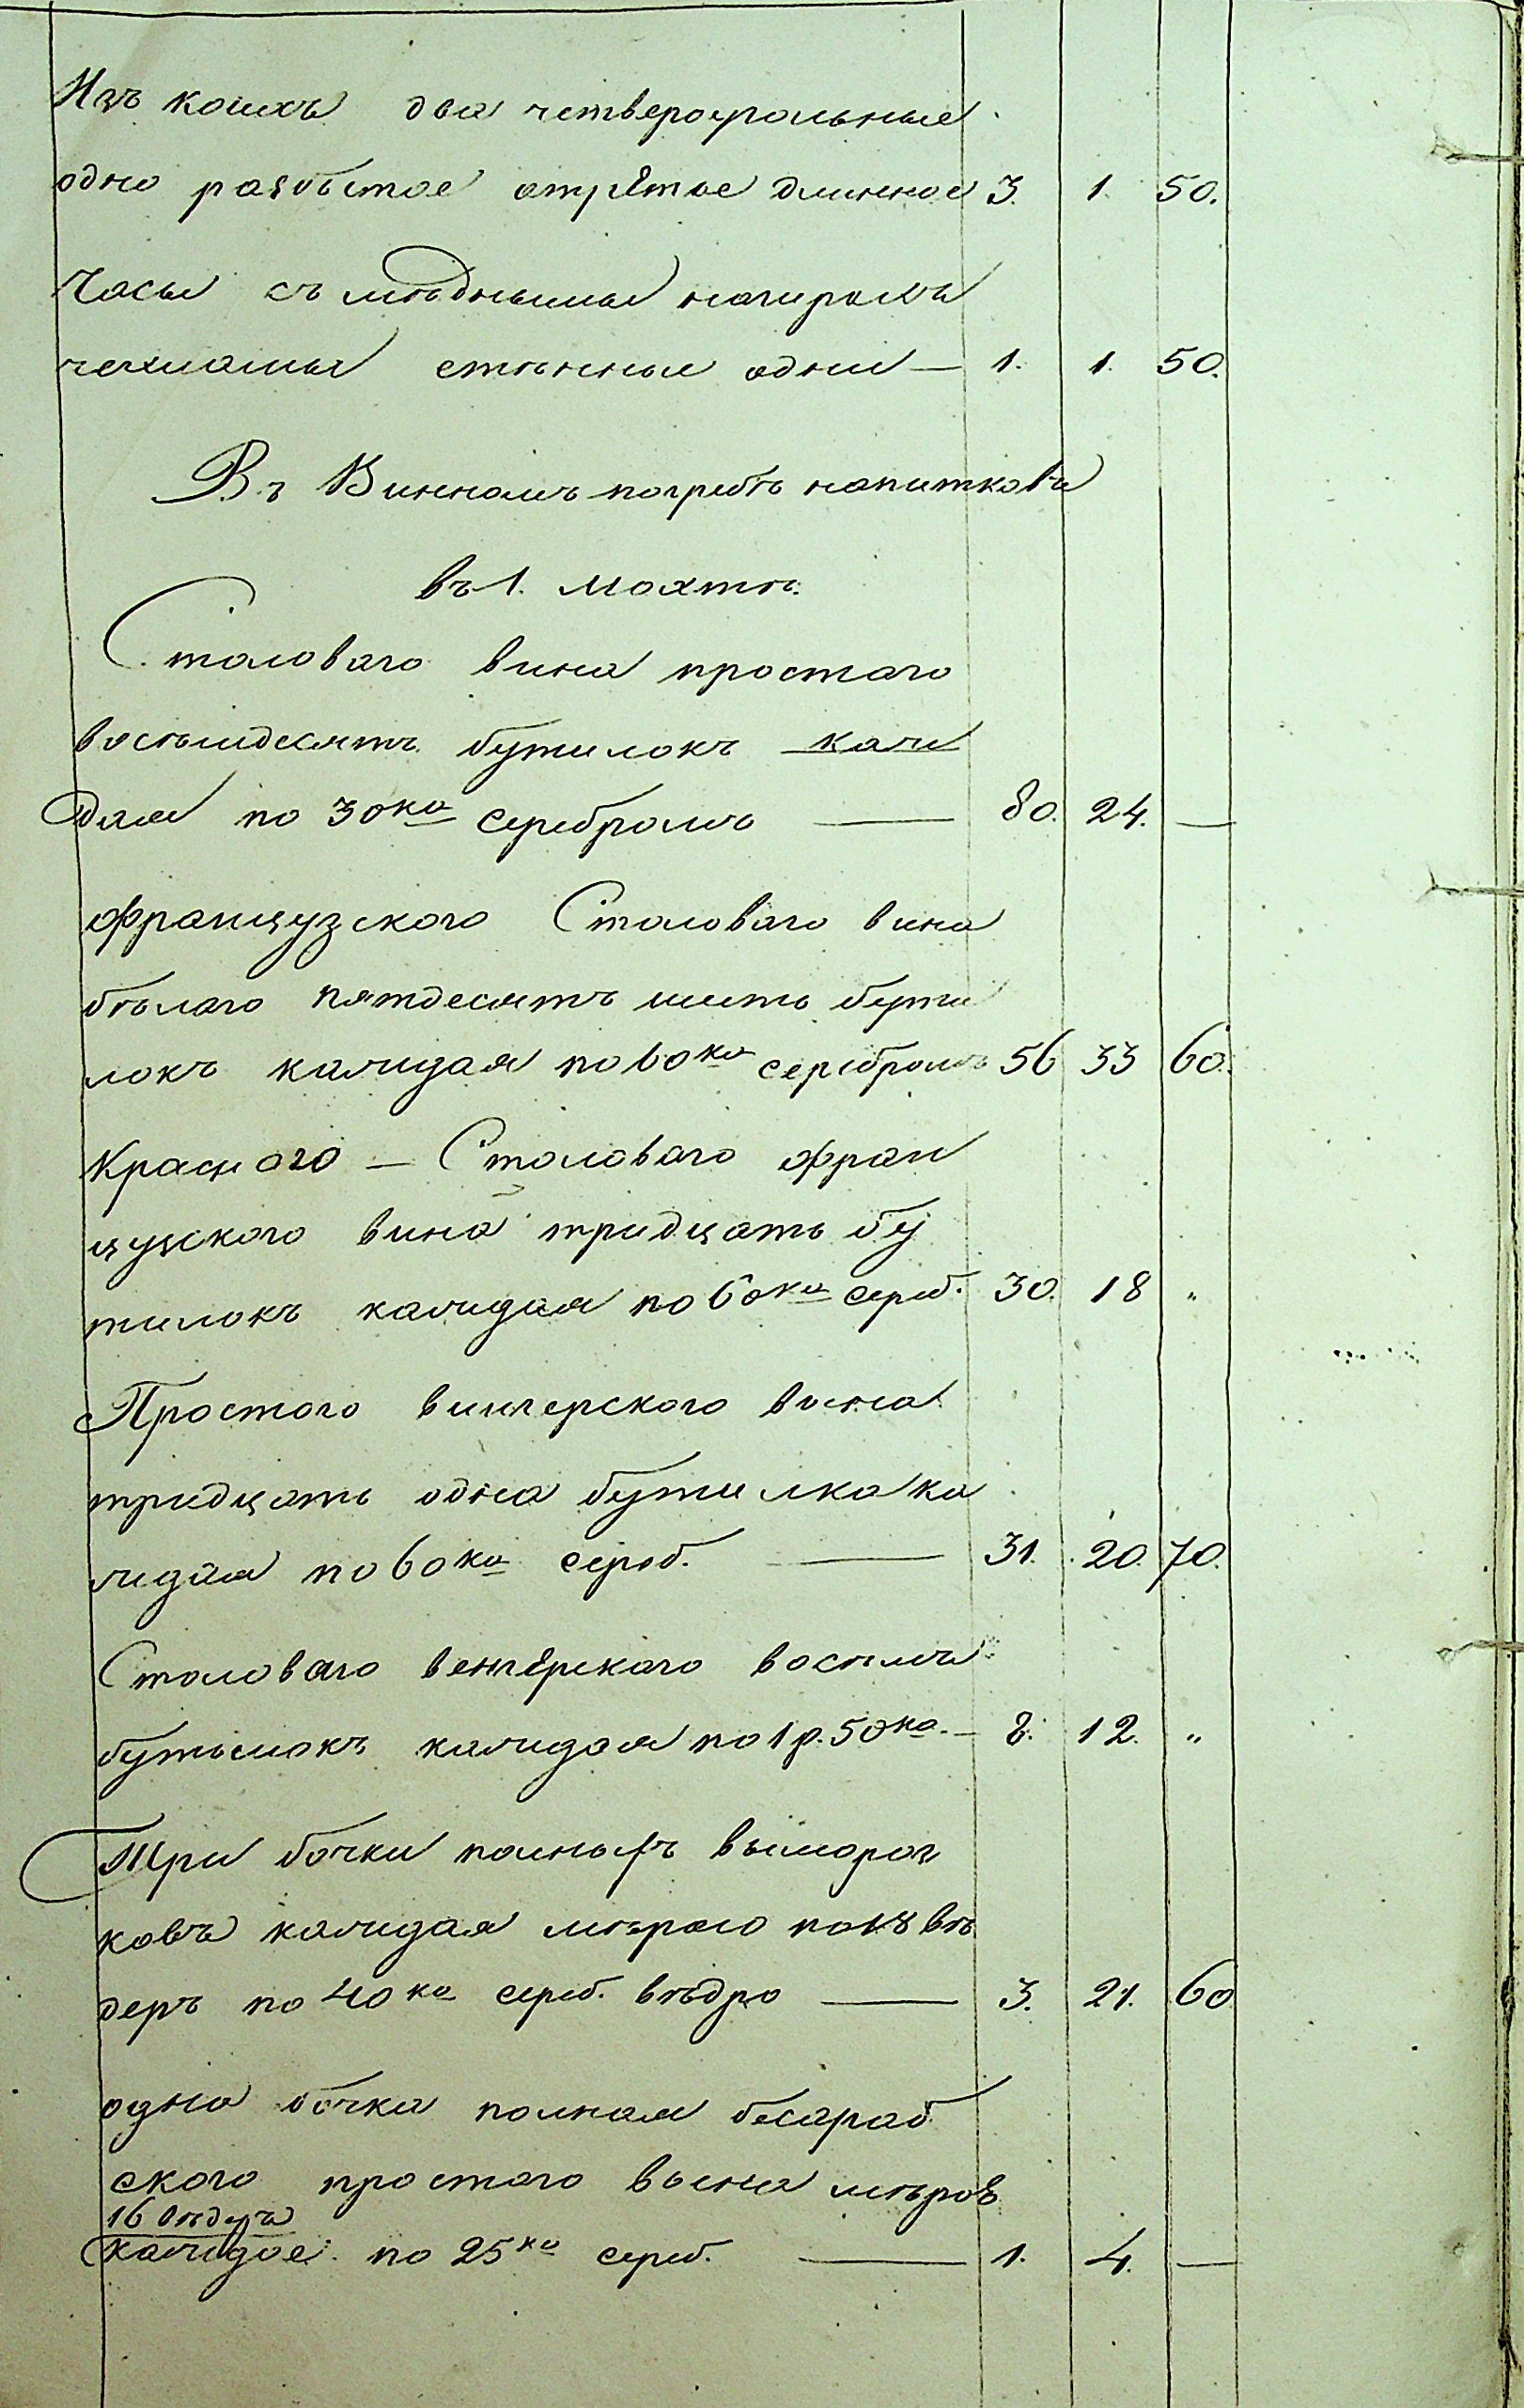 Изъ коихъ два четвероугольные
одно разбитое отрѣтое длинное 3. 1. 50.
Часы съ мѣдными
стѣнные одни — 1. 1. 50.
Въ Винномъ погребѣ напитковъ
въ 1. мохтѣ.
Столоваго вина простаго
восемдесятъ бутилокъ каж
дая по 30 ка серебромъ — 80. 24. —
французского Столоваго вина
бѣлаго пятдесятъ шесть бути
локъ каждая по 60 ка серебромъ 56 33 60.
Красного — Столоваго фран
цузского вина тридцать бу
тилокъ каждая по 60 ка сереб. 30. 18 „
Простого венгерского вина
тридцать одна бутилка ка
ждая по 60 ка сереб. — 31. 20. 70.
Столоваго венгерскаго восемъ
бутылокъ каждая по 1 р. 50 ка. — 8. 12. „
Три бочки полныхъ вымороз
ковъ каждая мѣрою по 18 вѣ
деръ по 40 ка сереб. вѣдро — 3. 21. 60
одна бочка полная бесараб
ского простого вина мѣроѣ
16 вѣдеръ
каждое по 25 ка сереб. — 1. 4. —